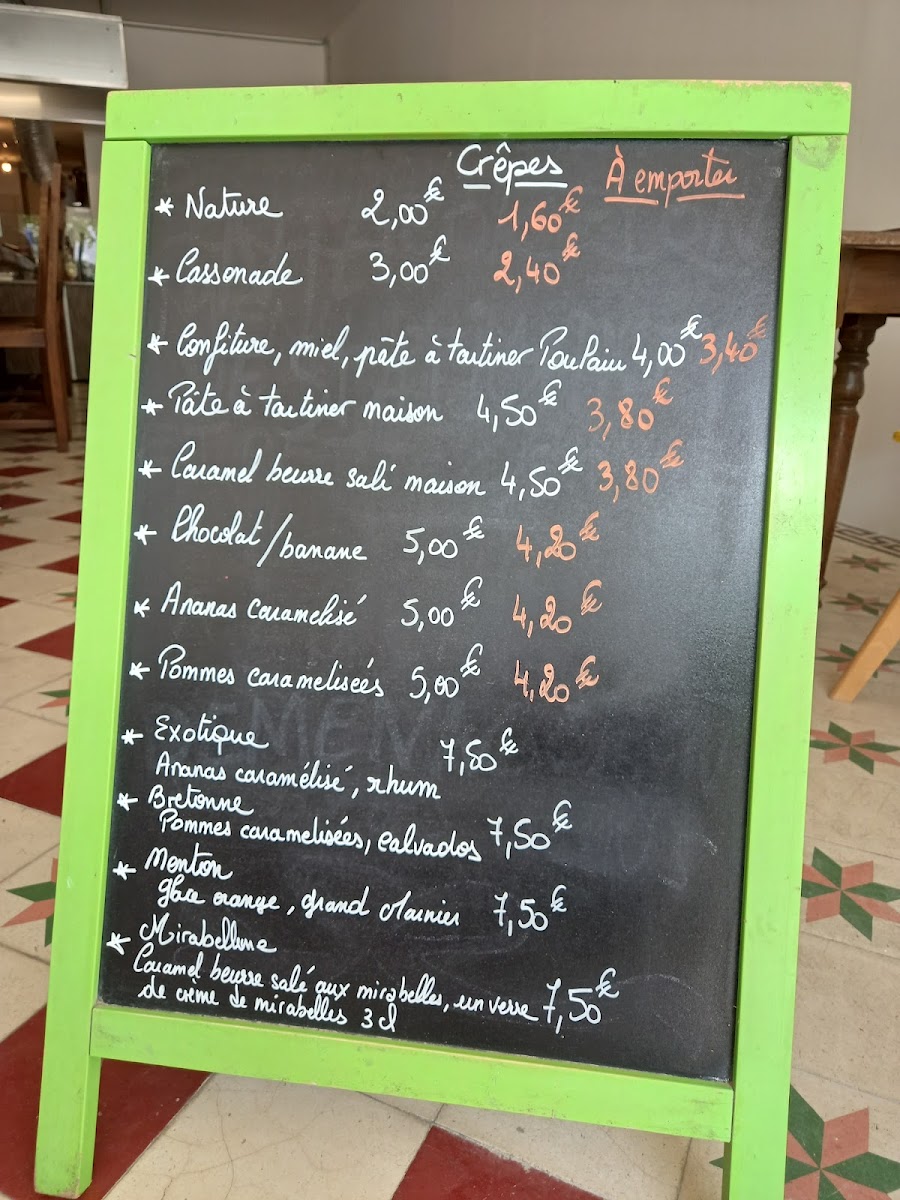 Crêpes À emporter
* Nature 2,00€ 1,60€
* Cassonade 3,00€ 2,40€
* Confiture, miel, pâte à tartiner Poulain 4,00€ 3,40€
* Pâte à tartiner maison 4,50€ 3,80€
* Caramel beurre salé maison 4,50€ 3,80€
* Chocolat/banane 5,00€ 4,20€
* Ananas caramelisé 5,00€ 4,20€
* Pommes caramelisées 5,00€ 4,20€
* Exotique 7,50€
Ananas caramélisé, rhum
* Bretonne
Pommes caramelisées, calvados 7,50€
* Menton
glace orange, grand Marnier 7,50€
* Mirabellune
Caramel beurre salé aux mirabelles, un verre 7,50€
de crème de mirabelles 3cl